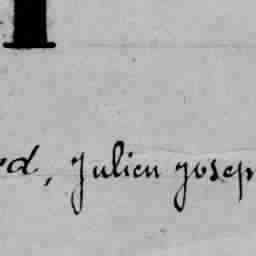 od, Julien Josep